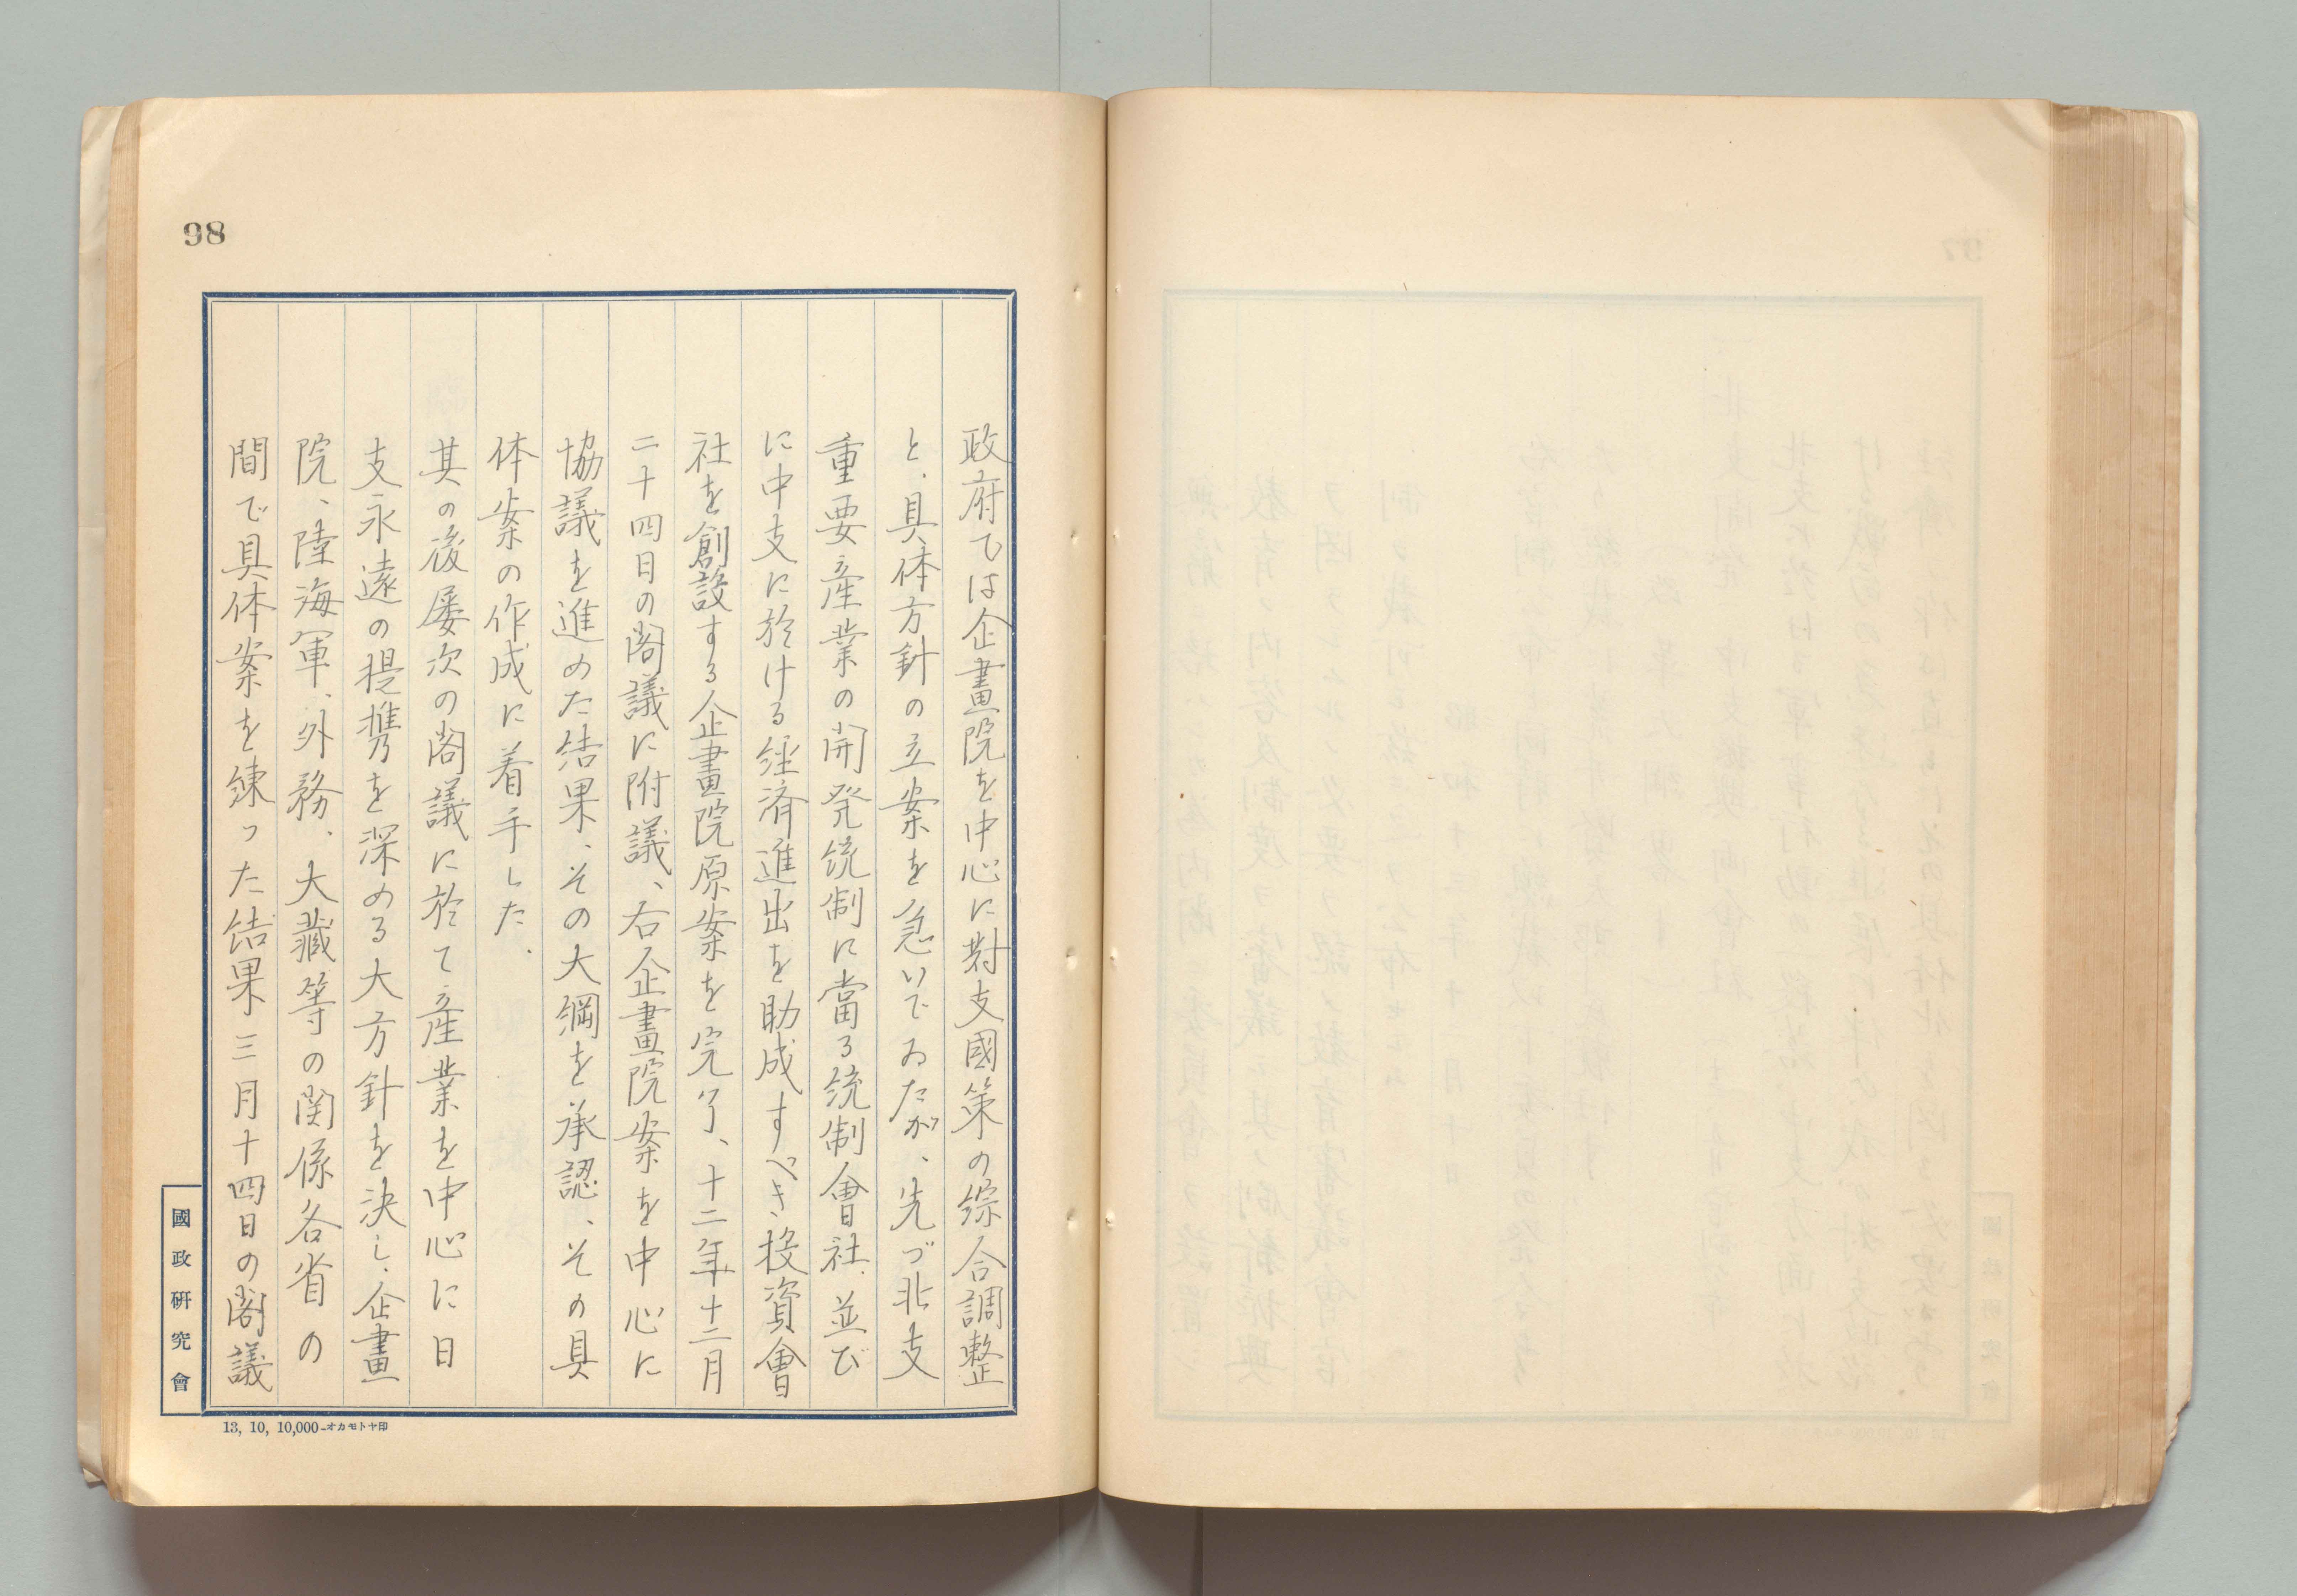 98
政府では企畫院を中心に對支國策の綜合調整
と、具体方針の立案を急いでゐたが、先づ北支
重要産業の開発統制に當る統制會社、並び
に中支に於ける経済進出を助成すべき投資會
社を創設する企畫院原案を完了、十二年十二月
二十四日の閣議に附議、右企畫院案を中心に
協議を進めた結果、その大綱を承認、その具
体案の作成に着手した、
其の後屡次の閣議に於て産業を中心に日
支永遠の提携を深める大方針を決し、企畫
院、陸海軍、外務、大藏等の関係各省の
間で具体案を錬った結果三月十四日の閣議
國政研究會
13, 10, 10,000-オカモトヤ印